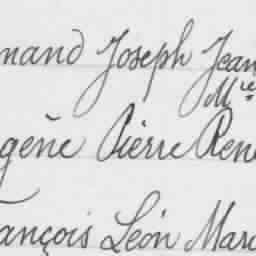 nand Joseph Jean
Mie
gène Pierre René
ançois Léon Marc